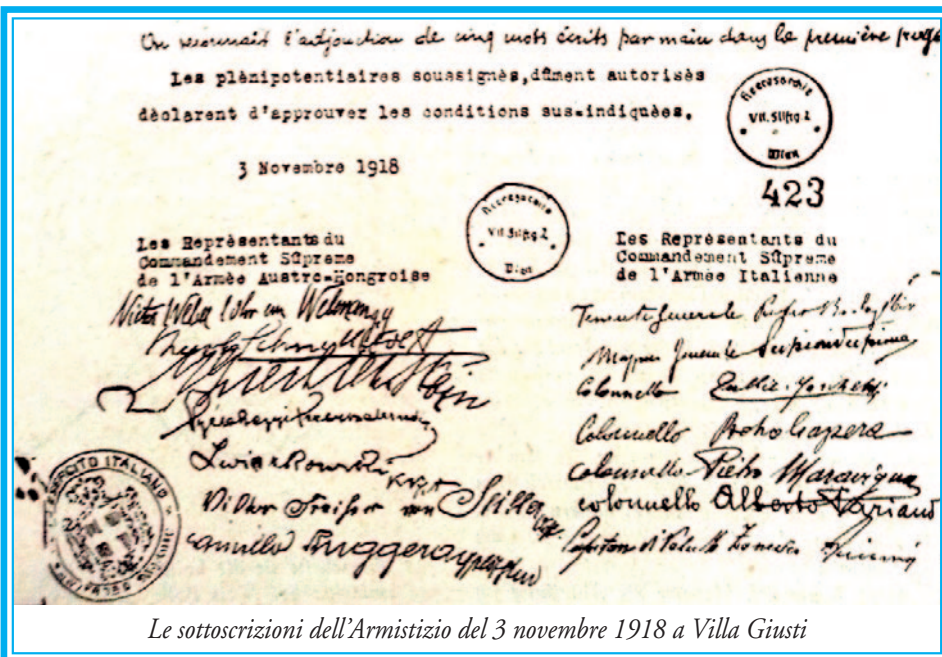 On reconnait l'adjonction de cinq mots écrits par main dans la première page
Les plènipotentiaires soussignès,dûment autorisès
dèclarent d'approuver les conditions sus-indiquèes.
3 Novembre 1918
Wien
423
Wien
Les Reprèsentants du
Commandement Sûpreme
de l'Armèe Austro-Hongroise
Victor Weber
Liechtenstein
Zwierkowski
Viktor Freiherr von Seiller
Camillo Ruggera
ESERCITO ITALIANO
Les Reprèsentants du
Commandement Sûpreme
de l'Armèe Italienne
Tenente Generale Pietro Badoglio
Maggior Generale Scipioni Scipione
Colonnello Tullio Marchetti
Colonnello Gazzera
Colonnello Pietro Maravigna
colonnello Alberto Pariani
Capitano di Vascello
Le sottoscrizioni dell'Armistizio del 3 novembre 1918 a Villa Giusti